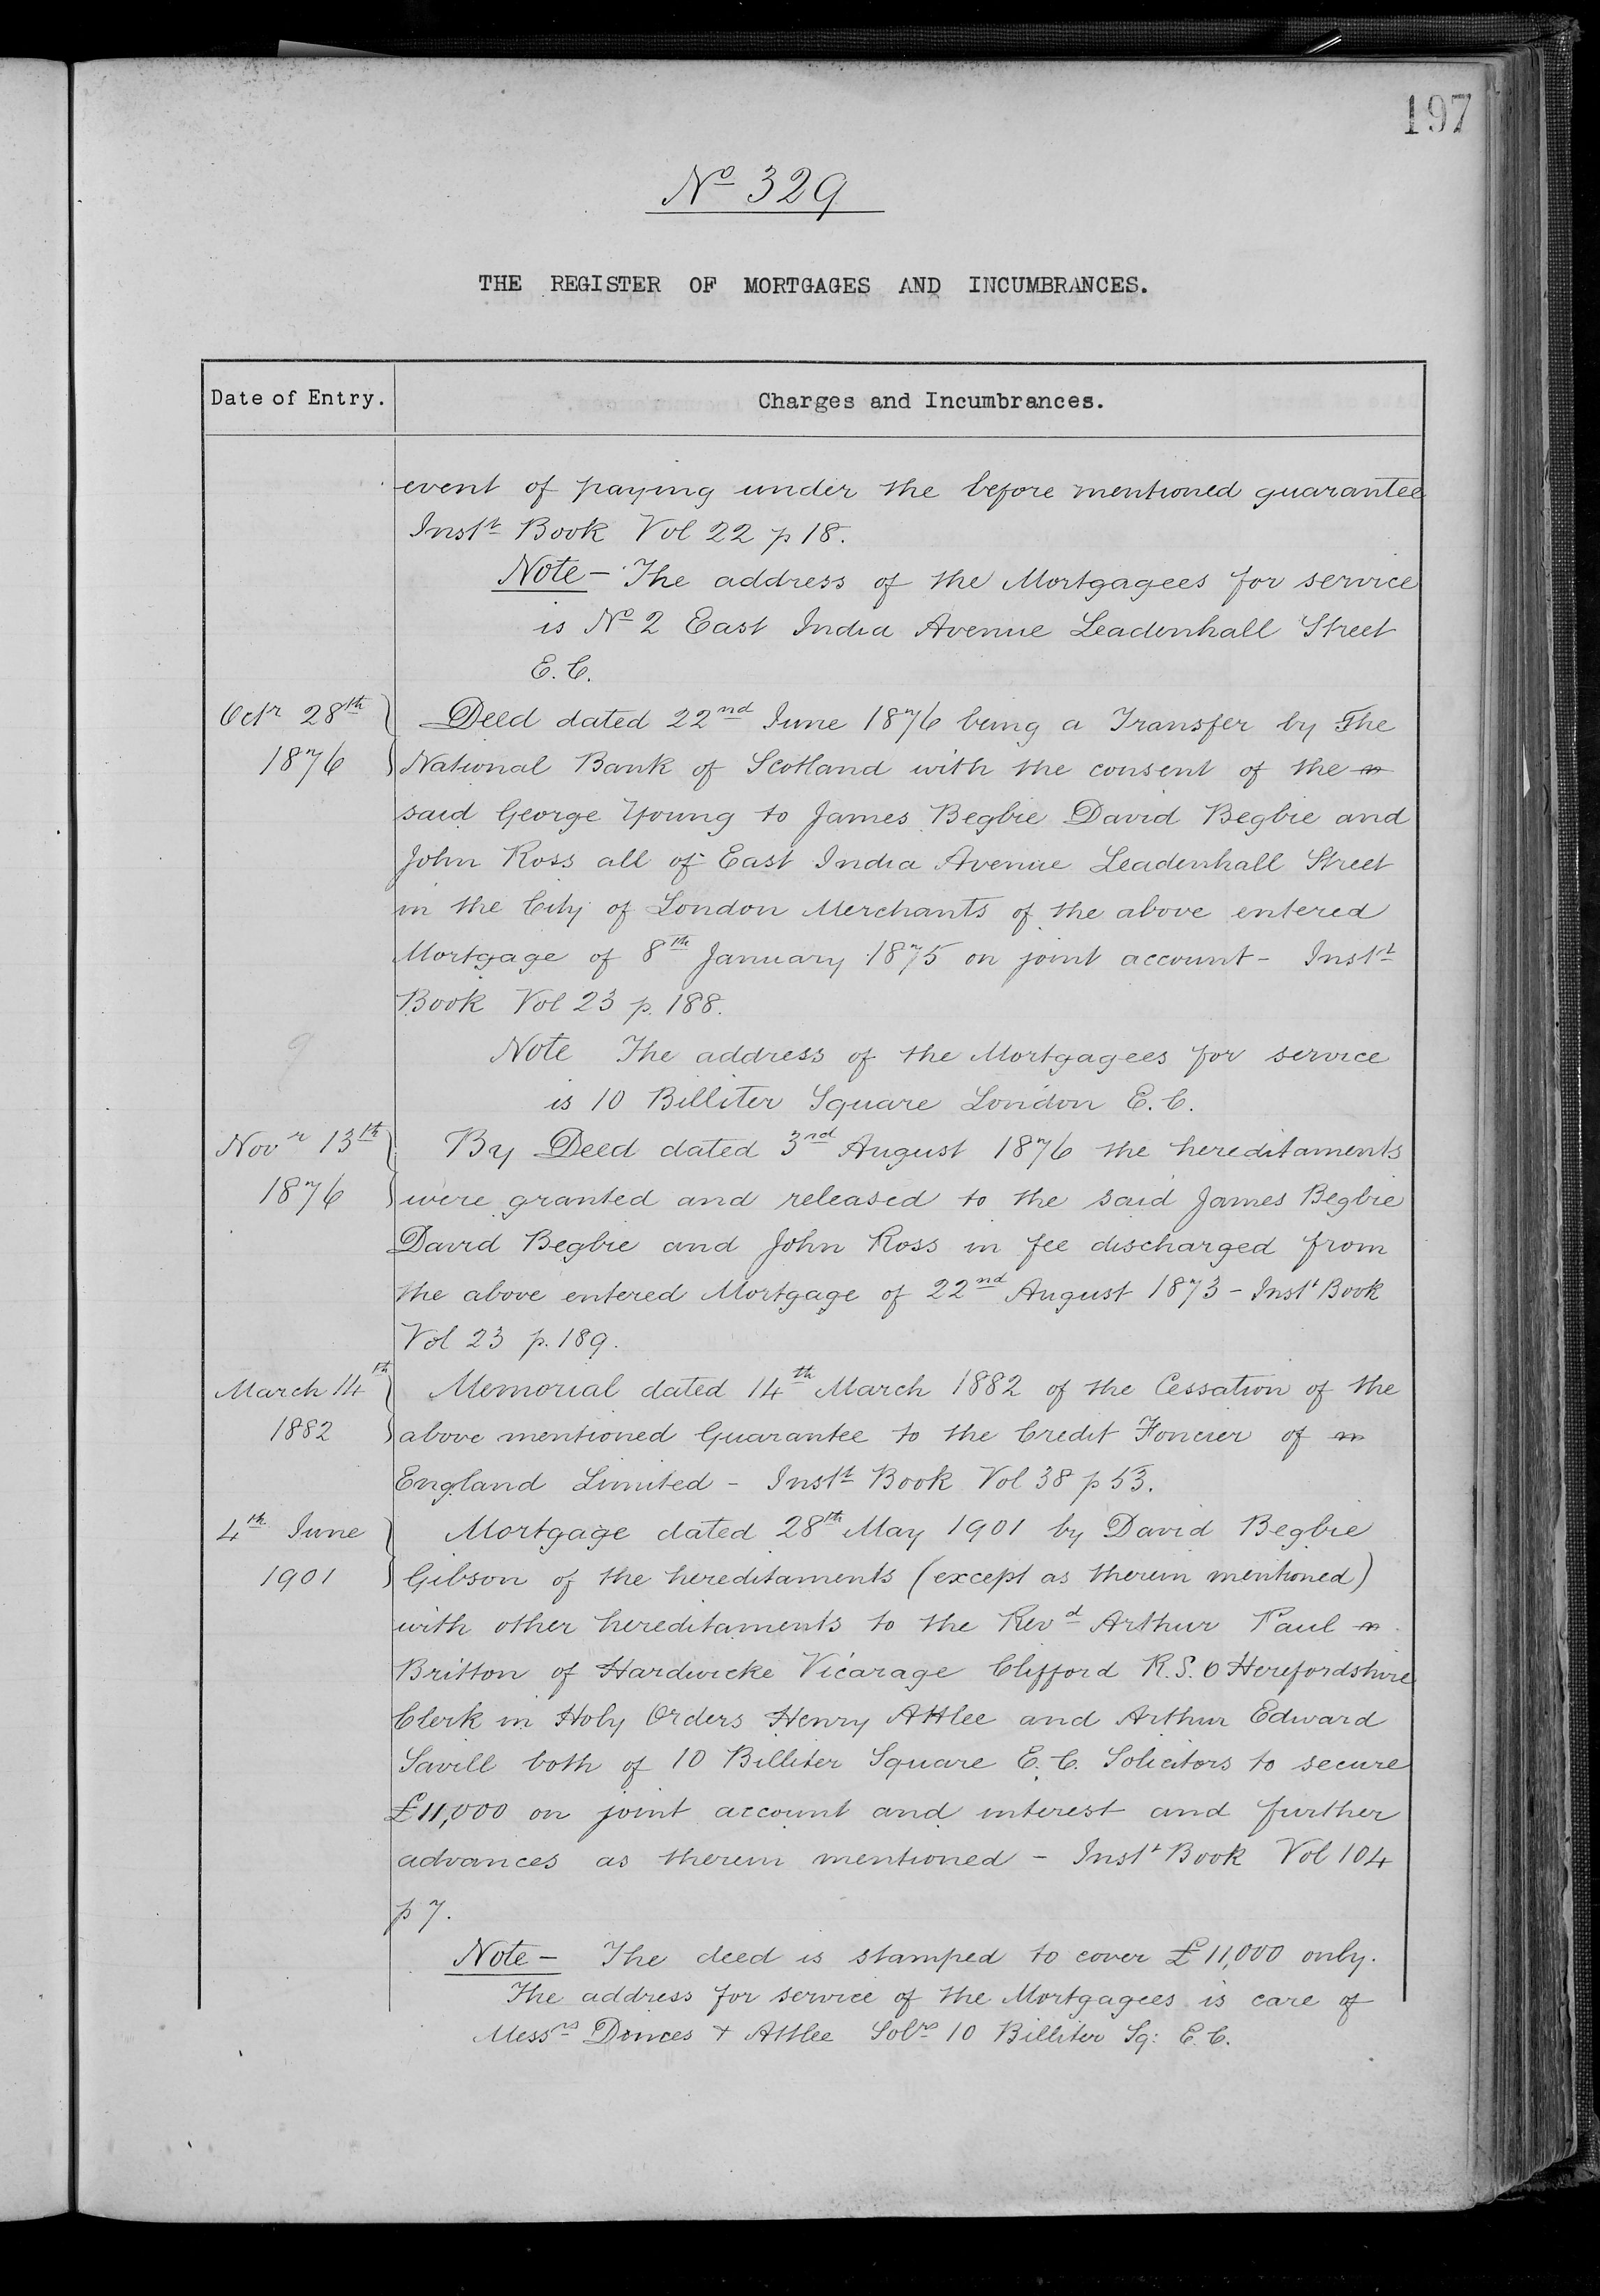 197
No 329
THE REGISTER OF MORTGAGES AND INCUMBRANCES.
Date of Entry. Charges and Incumbrances.
event of paying under the before mentioned guarantee
Instt Book Vol 22 p 18.
Note - The address of the Mortgagees for service
is No 2 East India Avenue Leadenhall Street
E. C.
Octr 28th Deed dated 22nd June 1876 being a Transfer by The
1876 National Bank of Scotland with the consent of the
said George Young to James Begbie David Begbie and
John Ross all of East India Avenue Leadenhall Street
in the City of London Merchants of the above entered
Mortgage of 8th January 1875 on joint account - Instt
Book Vol 23 p. 188.
9
Note The address of the Mortgagees for service
is 10 Billiter Square London E. C.
Novr 13th By Deed dated 3rd August 1876 the hereditaments
1876 were granted and released to the said James Begbie
David Begbie and John Ross in fee discharged from
the above entered Mortgage of 22nd August 1873 - Instt Book
Vol 23 p. 189.
March 14th Memorial dated 14th March 1882 of the Cessation of the
1882 above mentioned Guarantee to the Credit Foncier of
England Limited - Instt Book Vol 38 p 53.
4th June Mortgage dated 28th May 1901 by David Begbie
1901 Gibson of the hereditaments (except as therein mentioned)
with other hereditaments to the Revd Arthur Paul
Britton of Hardwicke Vicarage Clifford R.S.O Herefordshire
Clerk in Holy Orders Henry Attlee and Arthur Edward
Savill both of 10 Billiter Square E. C. Solicitors to secure
£11,000 on joint account and interest and further
advances as therein mentioned - Instt Book Vol 104
p 7.
Note - The deed is stamped to cover £11,000 only.
The address for service of the Mortgagees is care of
Messrs & Attlee Solrs 10 Billiter Sq: E. C.